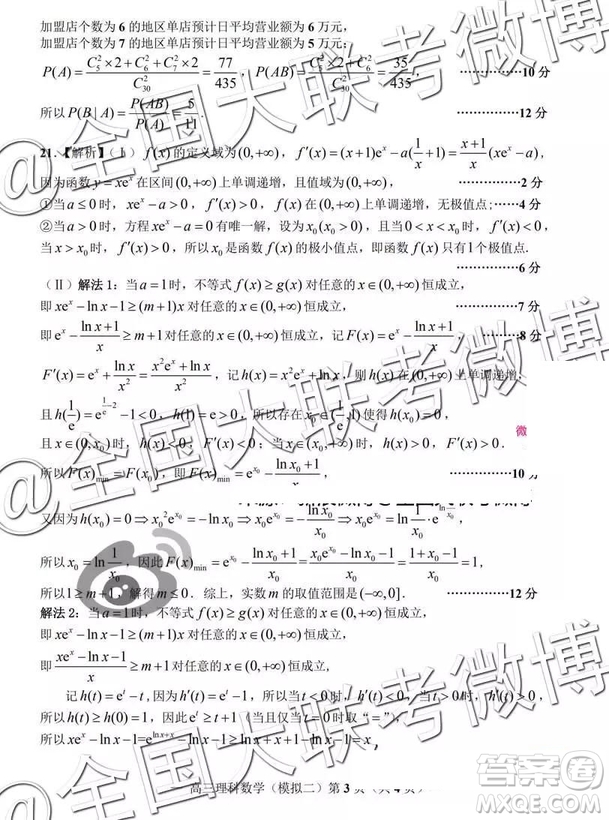 加盟店个数为 6 的地区单店预计日平均营业额为 6 万元,
加盟店个数为 7 的地区单店预计日平均营业额为 5 万元;
P(A)=(C₅²×2+C₆²+C₇²×2)/C₃₀²=77/435, P(AB)=(C₅²×2+C₆²)/C₃₀²=35/435, ……………10 分
所以 P(B|A)=P(AB)/P(A)=5/11. ……………12 分
21.【解析】(Ⅰ) f(x)的定义域为(0,+∞), f′(x)=(x+1)eˣ-a(1/x+1)=(x+1)/x(xeˣ-a),
因为函数 y=xeˣ 在区间(0,+∞)上单调递增,且值域为(0,+∞), ……………2 分
①当 a≤0 时, xeˣ-a>0, f′(x)>0, f(x)在(0,+∞)上单调递增,无极值点;……4 分
②当 a>0 时,方程 xeˣ-a=0 有唯一解,设为x₀(x₀>0),且当 0<x<x₀ 时, f′(x)<0;
当 x>x₀ 时, f′(x)>0,所以x₀是函数 f(x)的极小值点,即函数 f(x)只有1个极值点.
……………6 分
(Ⅱ) 解法 1:当 a=1时,不等式 f(x)≥g(x)对任意的 x∈(0,+∞)恒成立,
即 xeˣ-ln x-1≥(m+1)x 对任意的 x∈(0,+∞)恒成立, ……………7 分
即 eˣ-(ln x+1)/x≥m+1 对任意的 x∈(0,+∞)恒成立,记 F(x)=eˣ-(ln x+1)/x, ………8 分
F′(x)=eˣ+ln x/x²=(x²eˣ+ln x)/x²,记 h(x)=x²eˣ+ln x,则 h(x)在(0,+∞)上单调递增,
且 h(1/e)=e^(1/e-2)-1<0, h(1)=e>0,所以存在 x₀∈(1/e,1)使得 h(x₀)=0,
且当 x∈(0,x₀)时, h(x)<0, F′(x)<0;当 x∈(x₀,+∞)时, h(x)>0, F′(x)>0.
微
所以 F(x)min=F(x₀),即 F(x)min=e^(x₀)-(ln x₀+1)/x₀, ……………10 分
又因为 h(x₀)=0⇒x₀²e^(x₀)=-ln x₀⇒x₀e^(x₀)=-ln x₀/x₀⇒x₀e^(x₀)=ln(1/x₀)·e^(ln(1/x₀)),
所以 x₀=ln(1/x₀),因此 F(x)min=e^(x₀)-(ln x₀+1)/x₀=1/x₀-(-x₀+1)/x₀=(1+x₀-1)/x₀=1,
所以1≥m+1,解得 m≤0.综上,实数 m 的取值范围是(-∞,0]. ……………12 分
解法 2:当 a=1时,不等式 f(x)≥g(x)对任意的 x∈(0,+∞)恒成立,
即 xeˣ-ln x-1≥(m+1)x 对任意的 x∈(0,+∞)恒成立,
即 (xeˣ-ln x-1)/x≥m+1 对任意的 x∈(0,+∞)恒成立,
记 h(t)=eᵗ-t,因为 h′(t)=eᵗ-1,所以当 t<0时, h′(t)<0,当 t>0时, h′(t)>0,
所以 h(t)≥h(0)=1,因此 eᵗ≥t+1(当且仅当 t=0时取"="),
所以 xeˣ-ln x-1=e^(ln x+x)
高三理科数学(模拟二)第 3 页(共 4 页)
@全国大联考微博
@全国大联考微博
答案圈